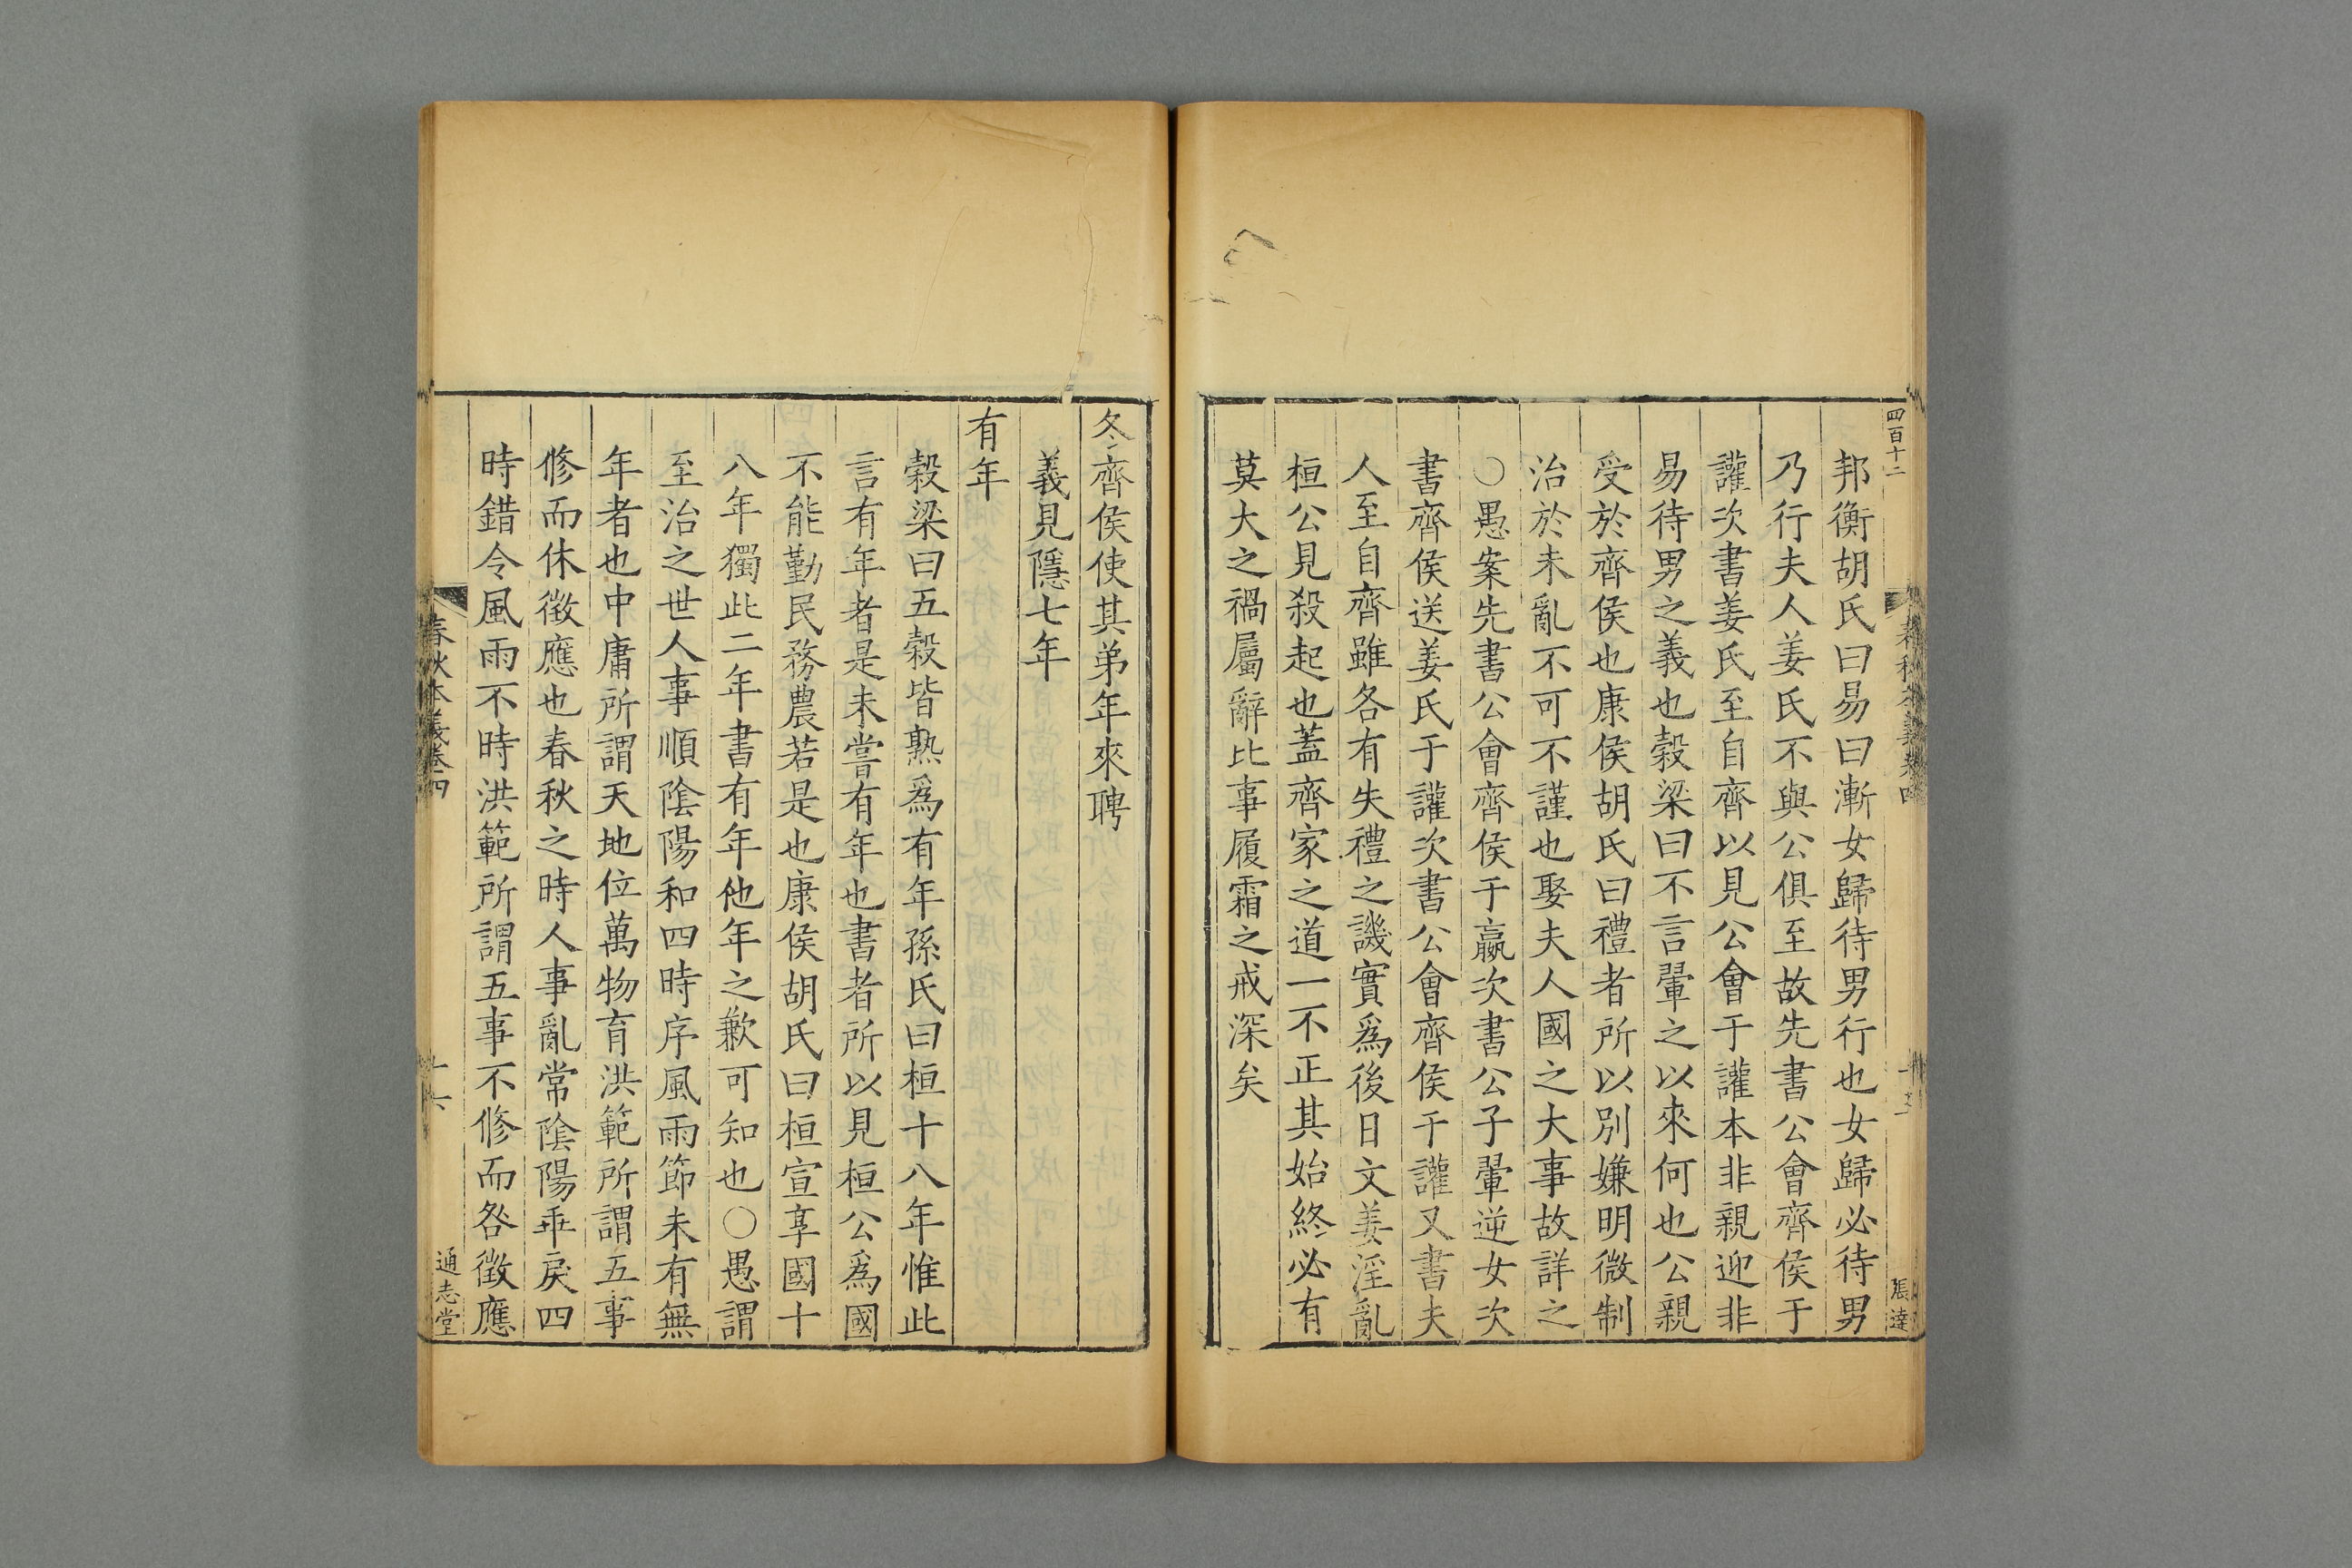 四百十二
張達
邦衡胡氏曰易曰漸女歸待男行也女歸必待男
乃行夫人姜氏不與公俱至故先書公會齊侯于
讙次書姜氏至自齊以見公會于讙本非親迎非
易待男之義也穀梁曰不言翬之以來何也公親
受於齊侯也康侯胡氏曰禮者所以別嫌明微制
治於未亂不可不謹也娶夫人國之大事故詳之
○愚案先書公會齊侯于嬴次書公子翬逆女次
書齊侯送姜氏于讙次書公會齊侯于讙又書夫
人至自齊雖各有失禮之譏實爲後日文姜淫亂
桓公見殺起也蓋齊家之道一不正其始終必有
莫大之禍屬辭比事履霜之戒深矣
冬齊侯使其弟年來聘
義見隱七年
有年
穀梁曰五穀皆熟爲有年孫氏曰桓十八年惟此
言有年者是未嘗有年也書者所以見桓公爲國
不能勤民務農若是也康侯胡氏曰桓宣享國十
八年獨此二年書有年他年之歉可知也○愚謂
至治之世人事順陰陽和四時序風雨節未有無
年者也中庸所謂天地位萬物育洪範所謂五事
修而休徵應也春秋之時人事亂常陰陽乖戾四
時錯令風雨不時洪範所謂五事不修而咎徵應
春秋本義卷四
十六
通志堂